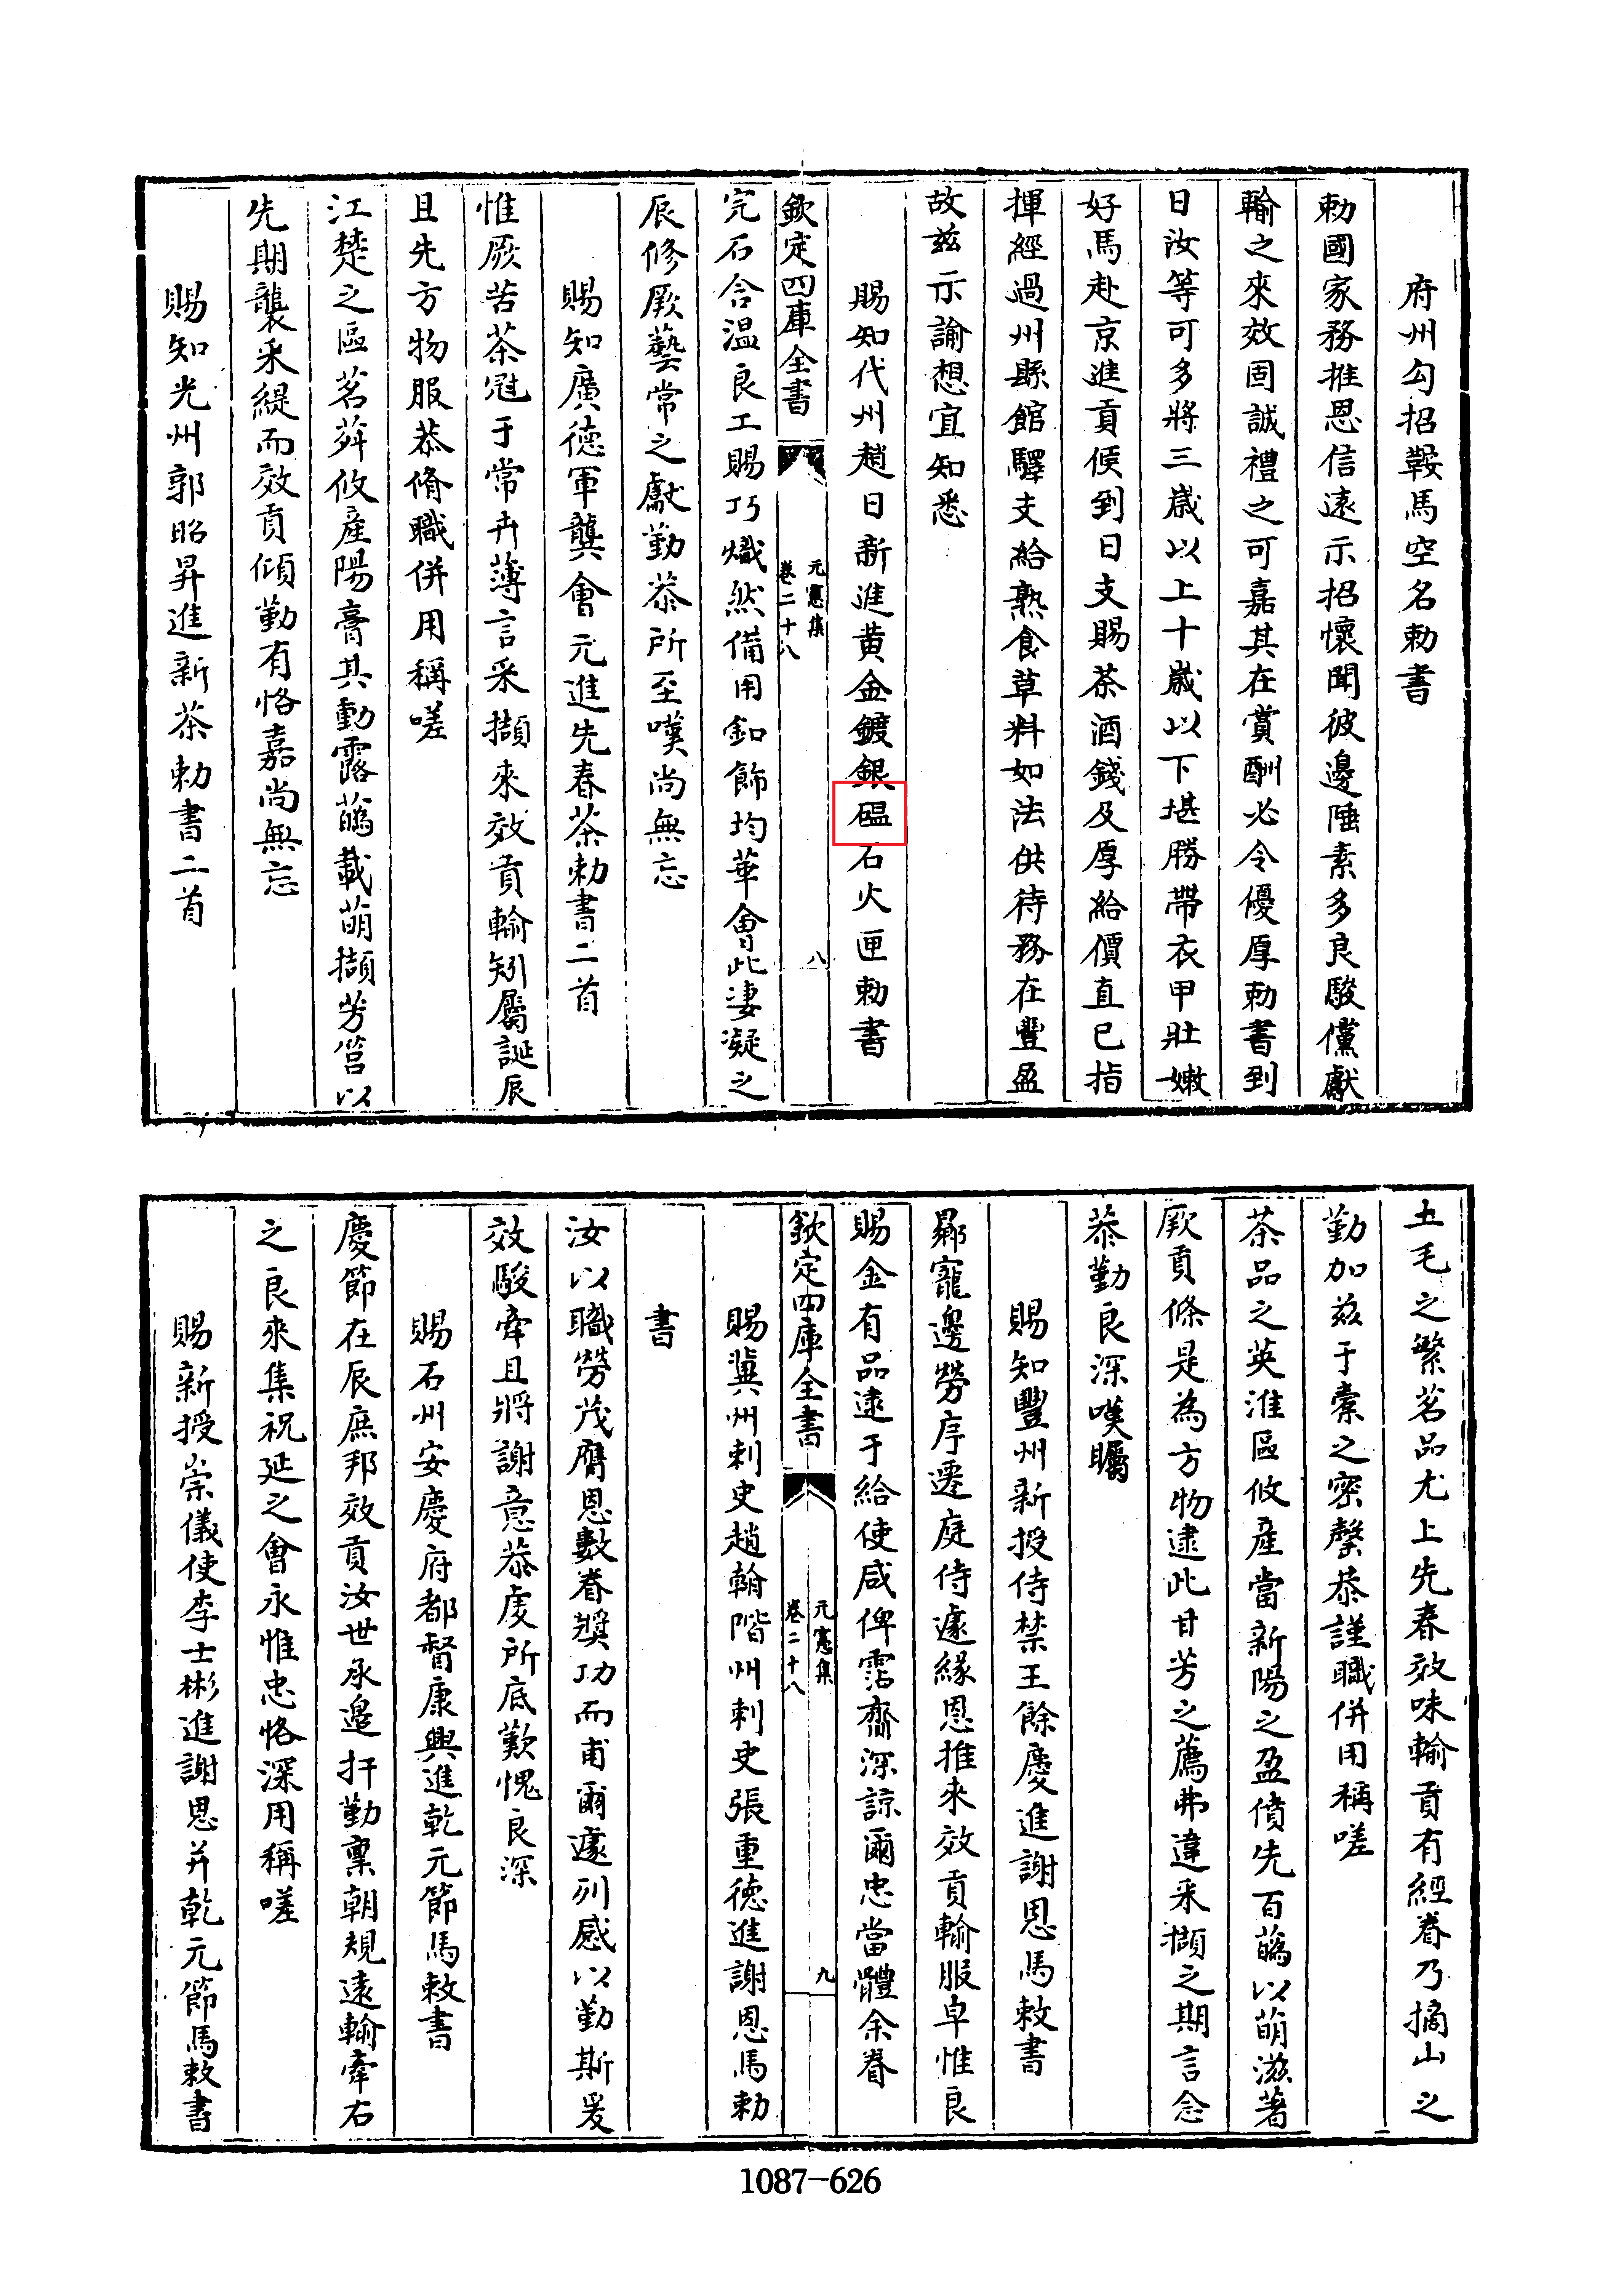 府州勾招鞍馬空名勅書
勅國家務推恩信逺示招懷聞彼邊陲素多良駿儻獻
輸之來效固誠禮之可嘉其在賞酬必令優厚勅書到
日汝等可多將三嵗以上十嵗以下堪勝帶衣甲壯嫩
好馬赴京進貢候到日支賜茶酒錢及厚給價直已指
揮經過州縣館驛支給熟食草料如法供待務在豐盈
故兹示諭想宜知悉
賜知代州趙日新進黄金鍍銀礠石火匣勅書
欽定四庫全書
元憲集
卷二十八
八
完石合温良工賜巧熾然備用釦飾均華㑹此淒凝之
辰修厥藝常之獻勤恭所至嘆尚無忘
賜知廣德軍龔㑹元進先春茶勅書二首
惟厥苦茶冠于常卉薄言采擷來效貢輸矧屬誕辰
且先方物服恭脩職併用稱嗟
江楚之區茗荈攸産陽膏其動露蘤載萌擷芳筥以
先期襲采緹而效貢傾勤有恪嘉尚無忘
賜知光州郭昭昇進新茶勅書二首
土毛之繁茗品尤上先春效味輸貢有經眷乃摘山之
勤加兹于槖之密罄恭謹職併用稱嗟
茶品之英淮區攸産當新陽之盈僨先百蘤以萌滋著
厥貢條是為方物逮此甘芳之薦弗違采擷之期言念
恭勤良深嘆矚
賜知豐州新授侍禁王餘慶進謝恩馬敕書
鄰寵邊勞序遷庭侍遽緣恩推來效貢輸服皁惟良
賜金有品逮于給使咸俾霑齎深諒爾忠當體余眷
欽定四庫全書
元憲集
卷二十八
九
賜冀州刺史趙翰階州刺史張重德進謝恩馬勅
書
汝以職勞茂膺恩數眷奬功而甫爾遽列感以勤斯爰
效駿牽且將謝意恭䖍所底歎愧良深
賜石州安慶府都督康興進乾元節馬敕書
慶節在辰庶邦效貢汝世承邉扞勤稟朝規逺輸牽右
之良來集祝延之㑹永惟忠恪深用稱嗟
賜新授崇儀使李士彬進謝恩并乾元節馬敕書
1087-626